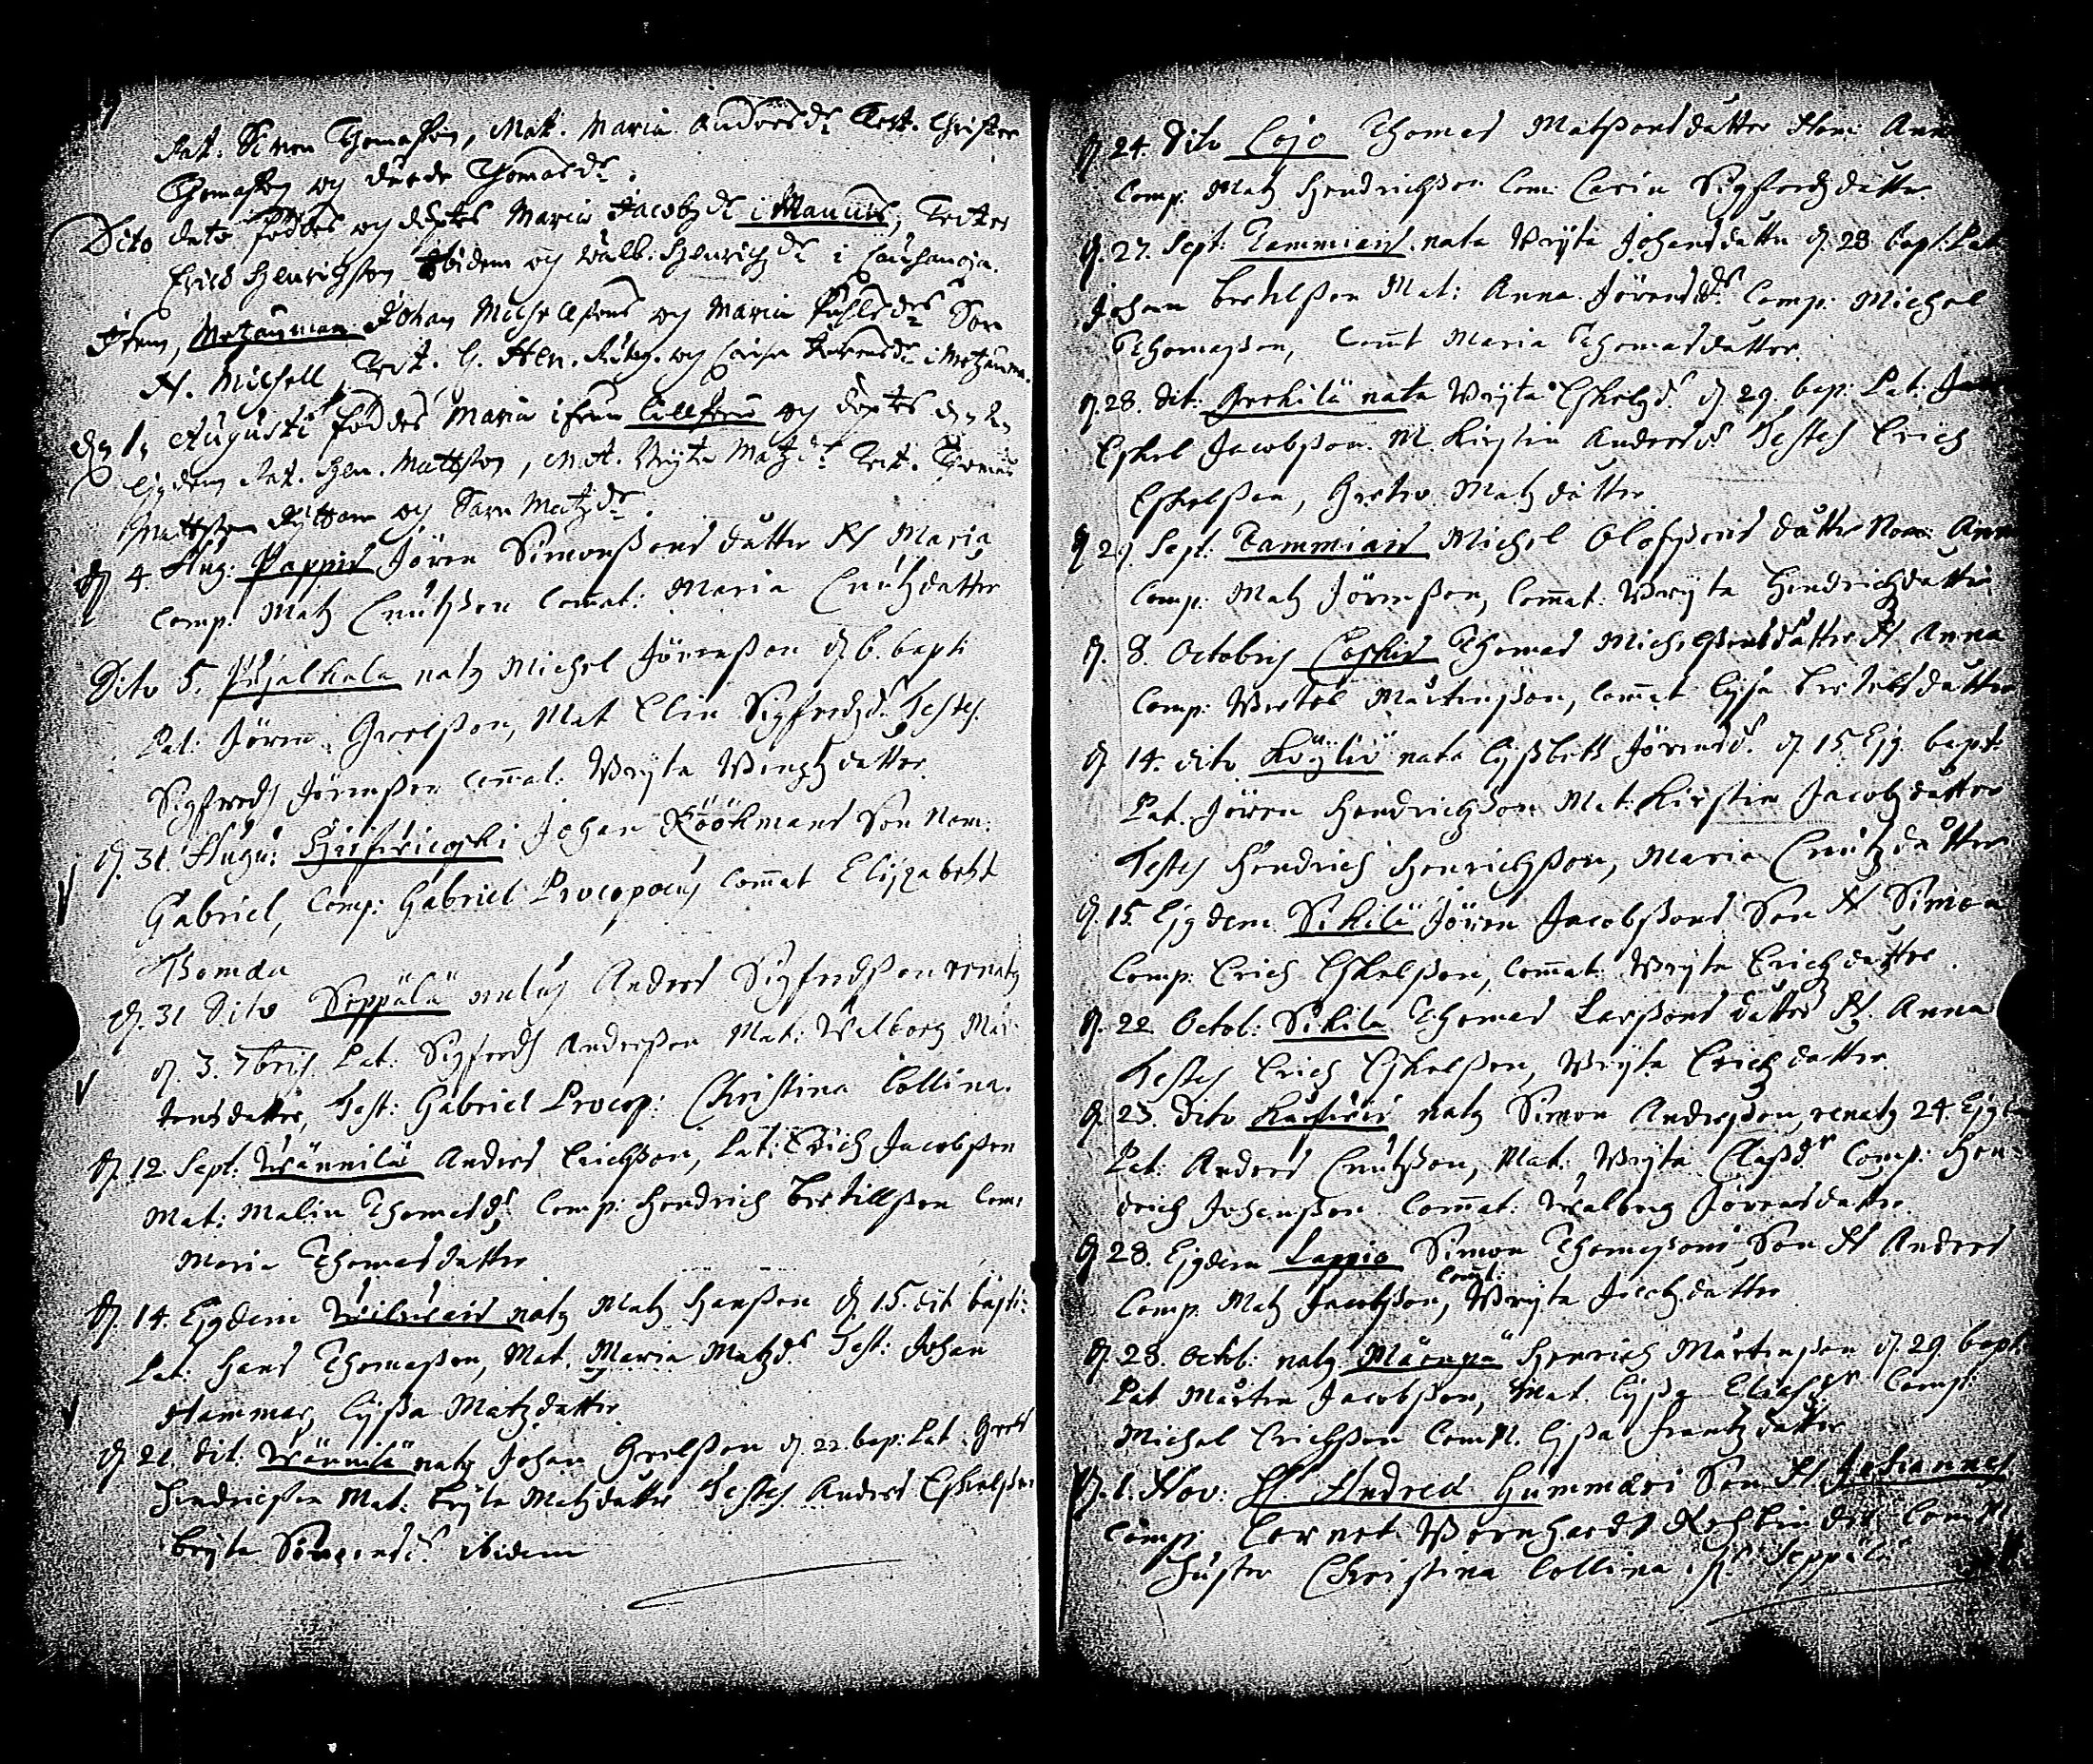 Pat: Simon Thomasson, Mat. Maria Andersdr Test. Christer
Thomasson och Thomasdr.
Dito dato föddes och döptes Maria Jacobzdr i Mauuis, Testes
Erich Henrichson Ibidem och Walb. Henrichzdr i
Item, Johan Michellsons och Maria Påhlsdr Son
N. Michell, Test. H. Hen. och Caisa
D. 1. Augusti föddes Maria ifrån och döptes d. 2.
Ejusdem Pat. Hen. Mattson, Mat. Bryta Matzdr Test. Thomas
Mattson och Sara Matzdr.
D. 4. Aug: Pappis Jören Simonßons dåtter N Maria
Comp. Matz Cnutzßon Comat: Maria Cnutzdåtter
Dito 5. Pujalkala natq Michel Jörenßon d. 6. bapti
Pat: Jören Grelsßon, Mat Elin Sigfredzdr. Testes.
Sigfredh Jörenßon Comat: Wryta dåtter.
D. 31. Augu: Johan Röökmans Son Nom:
Gabriel, Comp: Gabriel Procopoeus Comat Elizabeht
Thomdr
D. 31 Dito Seppälä natus Anders Sigfredhßon renatq
d. 3. 7bris. Pat: Sigfredh Andersßon Mat: Walborg Mår
tensdåtter, Test: Gabriel Procop: Christina Collina.
D. 12 Sept: Wännilä Anders Erichßon, Pat: Erich Jacobßon
Mat: Malin Thomasdr Comp: Hendrich Bertillßon Com:
Maria Thomasdåtter
D. 14. Ejusdem natq Matz Hanßon d. 15. dit bapti:
Pat: Hans Thomaßon, Mat. Maria Matzdr. Test: Johan
Hammar, Lyßa Matzdåtter
D. 21. dit: Wännilä natq Johan Grelsßon d. 22. bap: Pat: Grels
Hendrichßon Mat: Bryta Matzdåtter Testes Anders Eskelßon
Bryta Simonsdr. ibidem
D. 24. Dito Cojo Thomas Matßons dåtter Nom: Anna
Comp: Matz Hendrichßon Com: Carin Sigfredzdåtter.
D. 27. Sept: Tammiais nata Wryta Johansdåtter d. 28 bapt: Pat
Johan Bertelßon Mat: Anna Jörensdr Comp: Michel
Thomaßon, Comt Maria Thomasdåtter.
D. 28. dit: Grekilä nata Wryta Eskelzdr. d. 29. bap: Pat:
Eskel Jacobßon. M. Kirstin Andersdr Testes Erich
Eskelßon, Matzdåtter
D 29 Sept: Tammiais Michel Olofßons dåtter Nom: Anna
Comp: Matz Jörenßon, Comat: Wryta Hendrichzdåtter
D. 8. Octobris Coskis Thomas Michelßons dåtter N Anna
Comp: Wertel Mårtenßon, Comat Lysa Bertelsdåtter
D 14. dito Köyliö nata Lyßbett Jörensdr. d. 15. Ejq. bapt:
Pat. Jören Hendrichzßon Mat: Kirstin Jacobzdåtter
Testes Hendrich Henrichßon, Maria Cnutzdåtter
D. 15. Ejqdem Sikilä Jören Jacobßons Son N Simon
Comp: Erich Eskelßon, Comat: Wryta Erichzdåtter.
D. 22 Octob: Sikilä Thomas Larßons dåtter N. Anna
Testes Erich Eskelßon, Wryta Erichzdåtter.
D. 23. Dito natq Simon Andersßon, renatq 24. Ejqd
Pat: Anders Cnutzßon, Mat: Wryta Claßdr Comp: Hen-
drich Johanßon Comat: Walborg Jörensdåtter.
D 28. Ejqdem Lappio Simon Thomaßons Son N Anders
Comp. Matz Jacobßon, Comt: Wryta Jacobzdåtter
D. 28. Octob: natq Henrich Mårtenßon d. 29 bapt
Pat Mårten Jacobßon, Mat. Lyßa Eliasdr Comp:
Michel Erichßon ComM. Lyßa Frantzdåtter
D. 1. Nov: H Andreæ Hummæri Son N Johannes
Comp: Cornet Wernhardt ComM
Huster Christina Collina. Seppälä